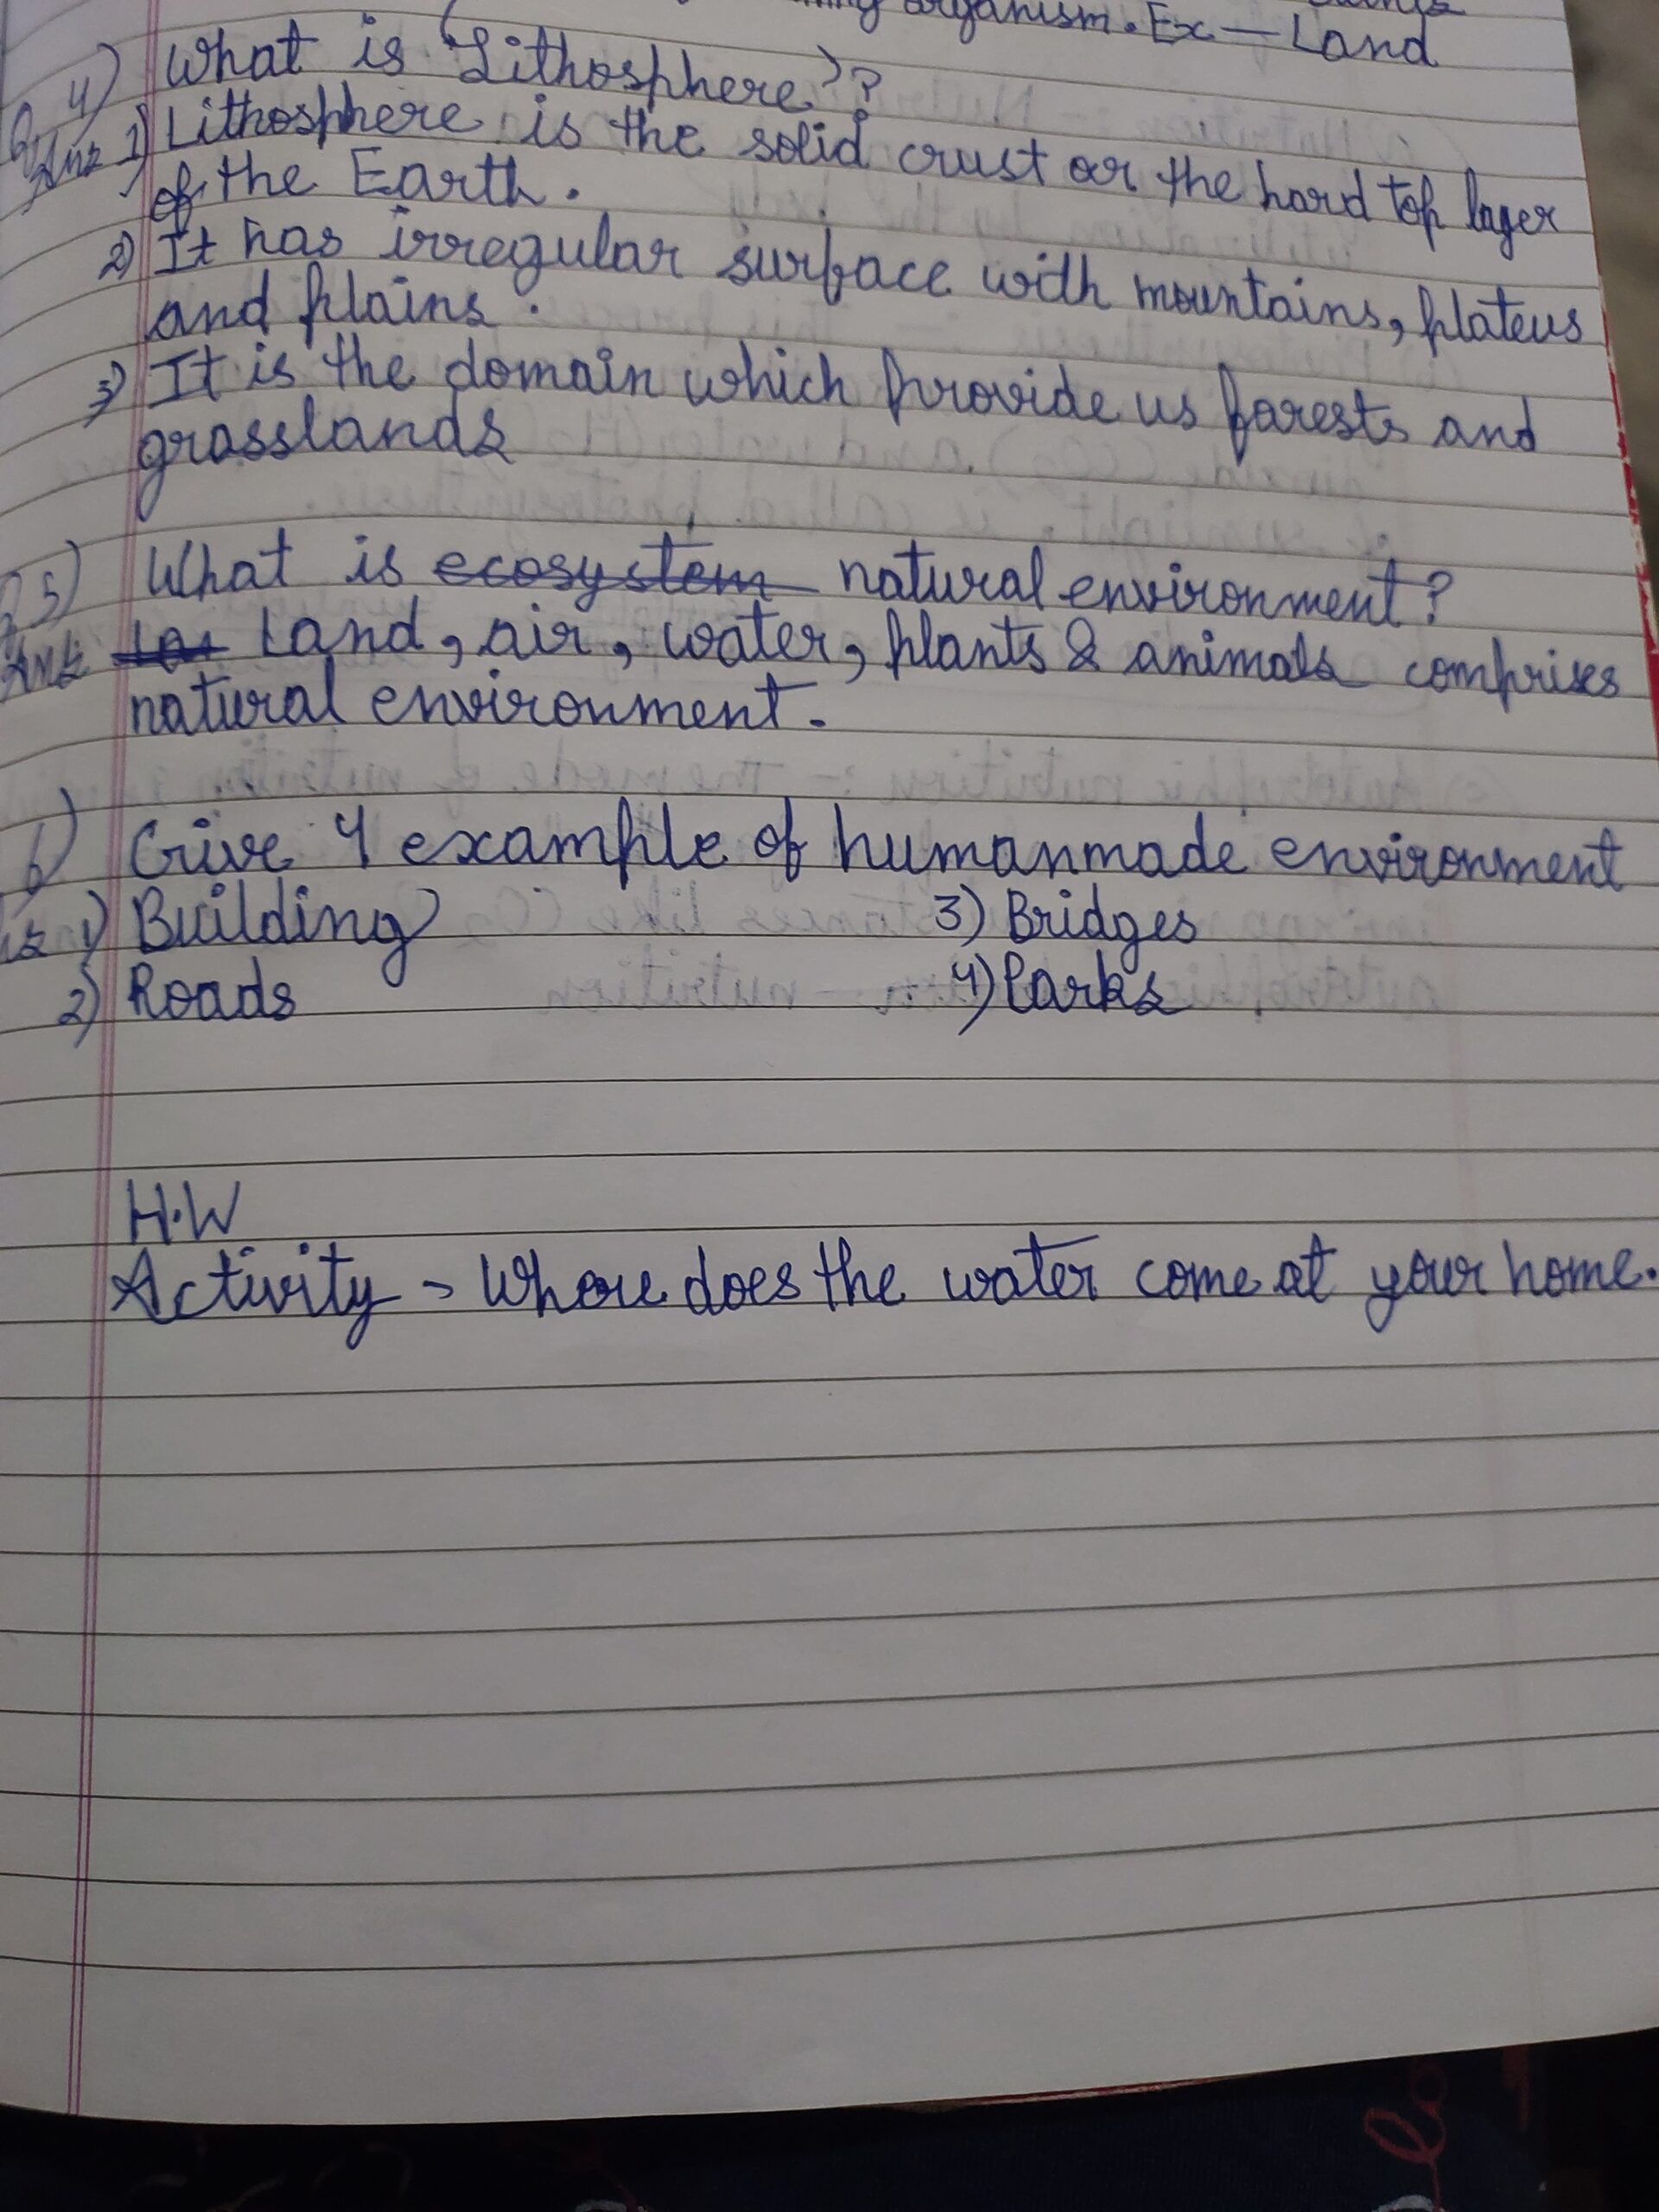 organism. Ex — Land
Q 4) What is 'Lithosphere'?
Ans 1) Lithosphere is the solid crust or the hard top layer
of the Earth.
2) It has irregular surface with mountains, plateus
and plains.
3) It is the domain which provide us forests and
grasslands
Q 5) What is ecosystem natural environment?
Ans Land, air, water, plants & animals comprises
natural environment.
6) Give 4 example of humanmade environment
1) Building 3) Bridges
2) Roads 4) Parks
H.W
Activity - Where does the water come at your home.